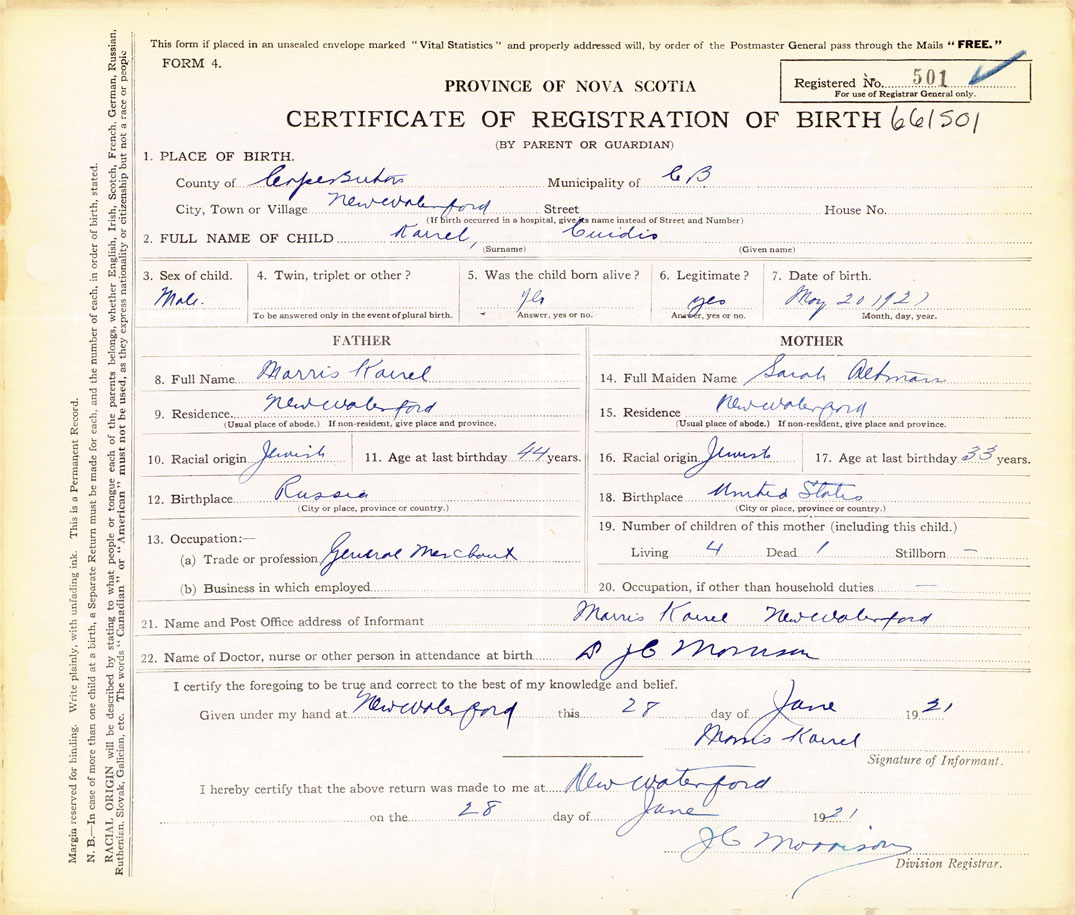 This form if placed in an unsealed envelope marked "Vital Statistics" and properly addressed will, by order of the Postmaster General pass through the Mails "FREE."
FORM 4.
Registered No. 501
For use of Registrar General only.
PROVINCE OF NOVA SCOTIA
CERTIFICATE OF REGISTRATION OF BIRTH 661501
(BY PARENT OR GUARDIAN)
1. PLACE OF BIRTH.
County of Municipality of C B
City, Town or Village New Waterford Street House No.
(If birth occurred in a hospital, give its name instead of Street and Number)
2. FULL NAME OF CHILD
(Surname) (Given name)
3. Sex of child. 4. Twin, triplet or other? 5. Was the child born alive? 6. Legitimate? 7. Date of birth.
Male. Yes yes May 20 1921
To be answered only in the event of plural birth. Answer, yes or no. Answer, yes or no. Month, day, year.
FATHER MOTHER
8. Full Name Morris 14. Full Maiden Name Sarah Altman
9. Residence New Waterford 15. Residence New Waterford
(Usual place of abode.) If non-resident, give place and province. (Usual place of abode.) If non-resident, give place and province.
10. Racial origin Jewish 11. Age at last birthday 44 years. 16. Racial origin Jewish 17. Age at last birthday 33 years.
12. Birthplace Russia 18. Birthplace United States
(City or place, province or country.) (City or place, province or country.)
13. Occupation:— 19. Number of children of this mother (including this child.)
(a) Trade or profession General Merchant Living 4 Dead 1 Stillborn —
(b) Business in which employed 20. Occupation, if other than household duties —
21. Name and Post Office address of Informant Morris New Waterford
22. Name of Doctor, nurse or other person in attendance at birth J C Morrison
I certify the foregoing to be true and correct to the best of my knowledge and belief.
Given under my hand at New Waterford this 28 day of June 1921
Morris
Signature of Informant.
I hereby certify that the above return was made to me at New Waterford
on the 28 day of June 1921
J C Morrison
Division Registrar.
Margin reserved for binding. Write plainly, with unfading ink. This is a Permanent Record.
N. B.—In case of more than one child at a birth, a Separate Return must be made for each, and the number of each, in order of birth, stated.
RACIAL ORIGIN will be described by stating to what people or tongue each of the parents belongs, whether English, Irish, Scotch, French, German, Russian,
Ruthenian, Slovak, Galician, etc. The words "Canadian" or "American" must not be used, as they express nationality or citizenship but not a race or people